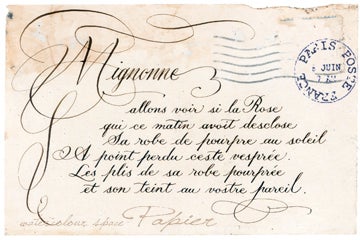 PARIS POSTE
FRANCE
JUIN
Mignonne
allons voir si la Rose
qui ce matin avoit desclose
Sa robe de pourpre au soleil
A point perdu ceste vesprée
Les plis de sa robe pourprée
et son teint au vostre pareil.
watercolour space Papier